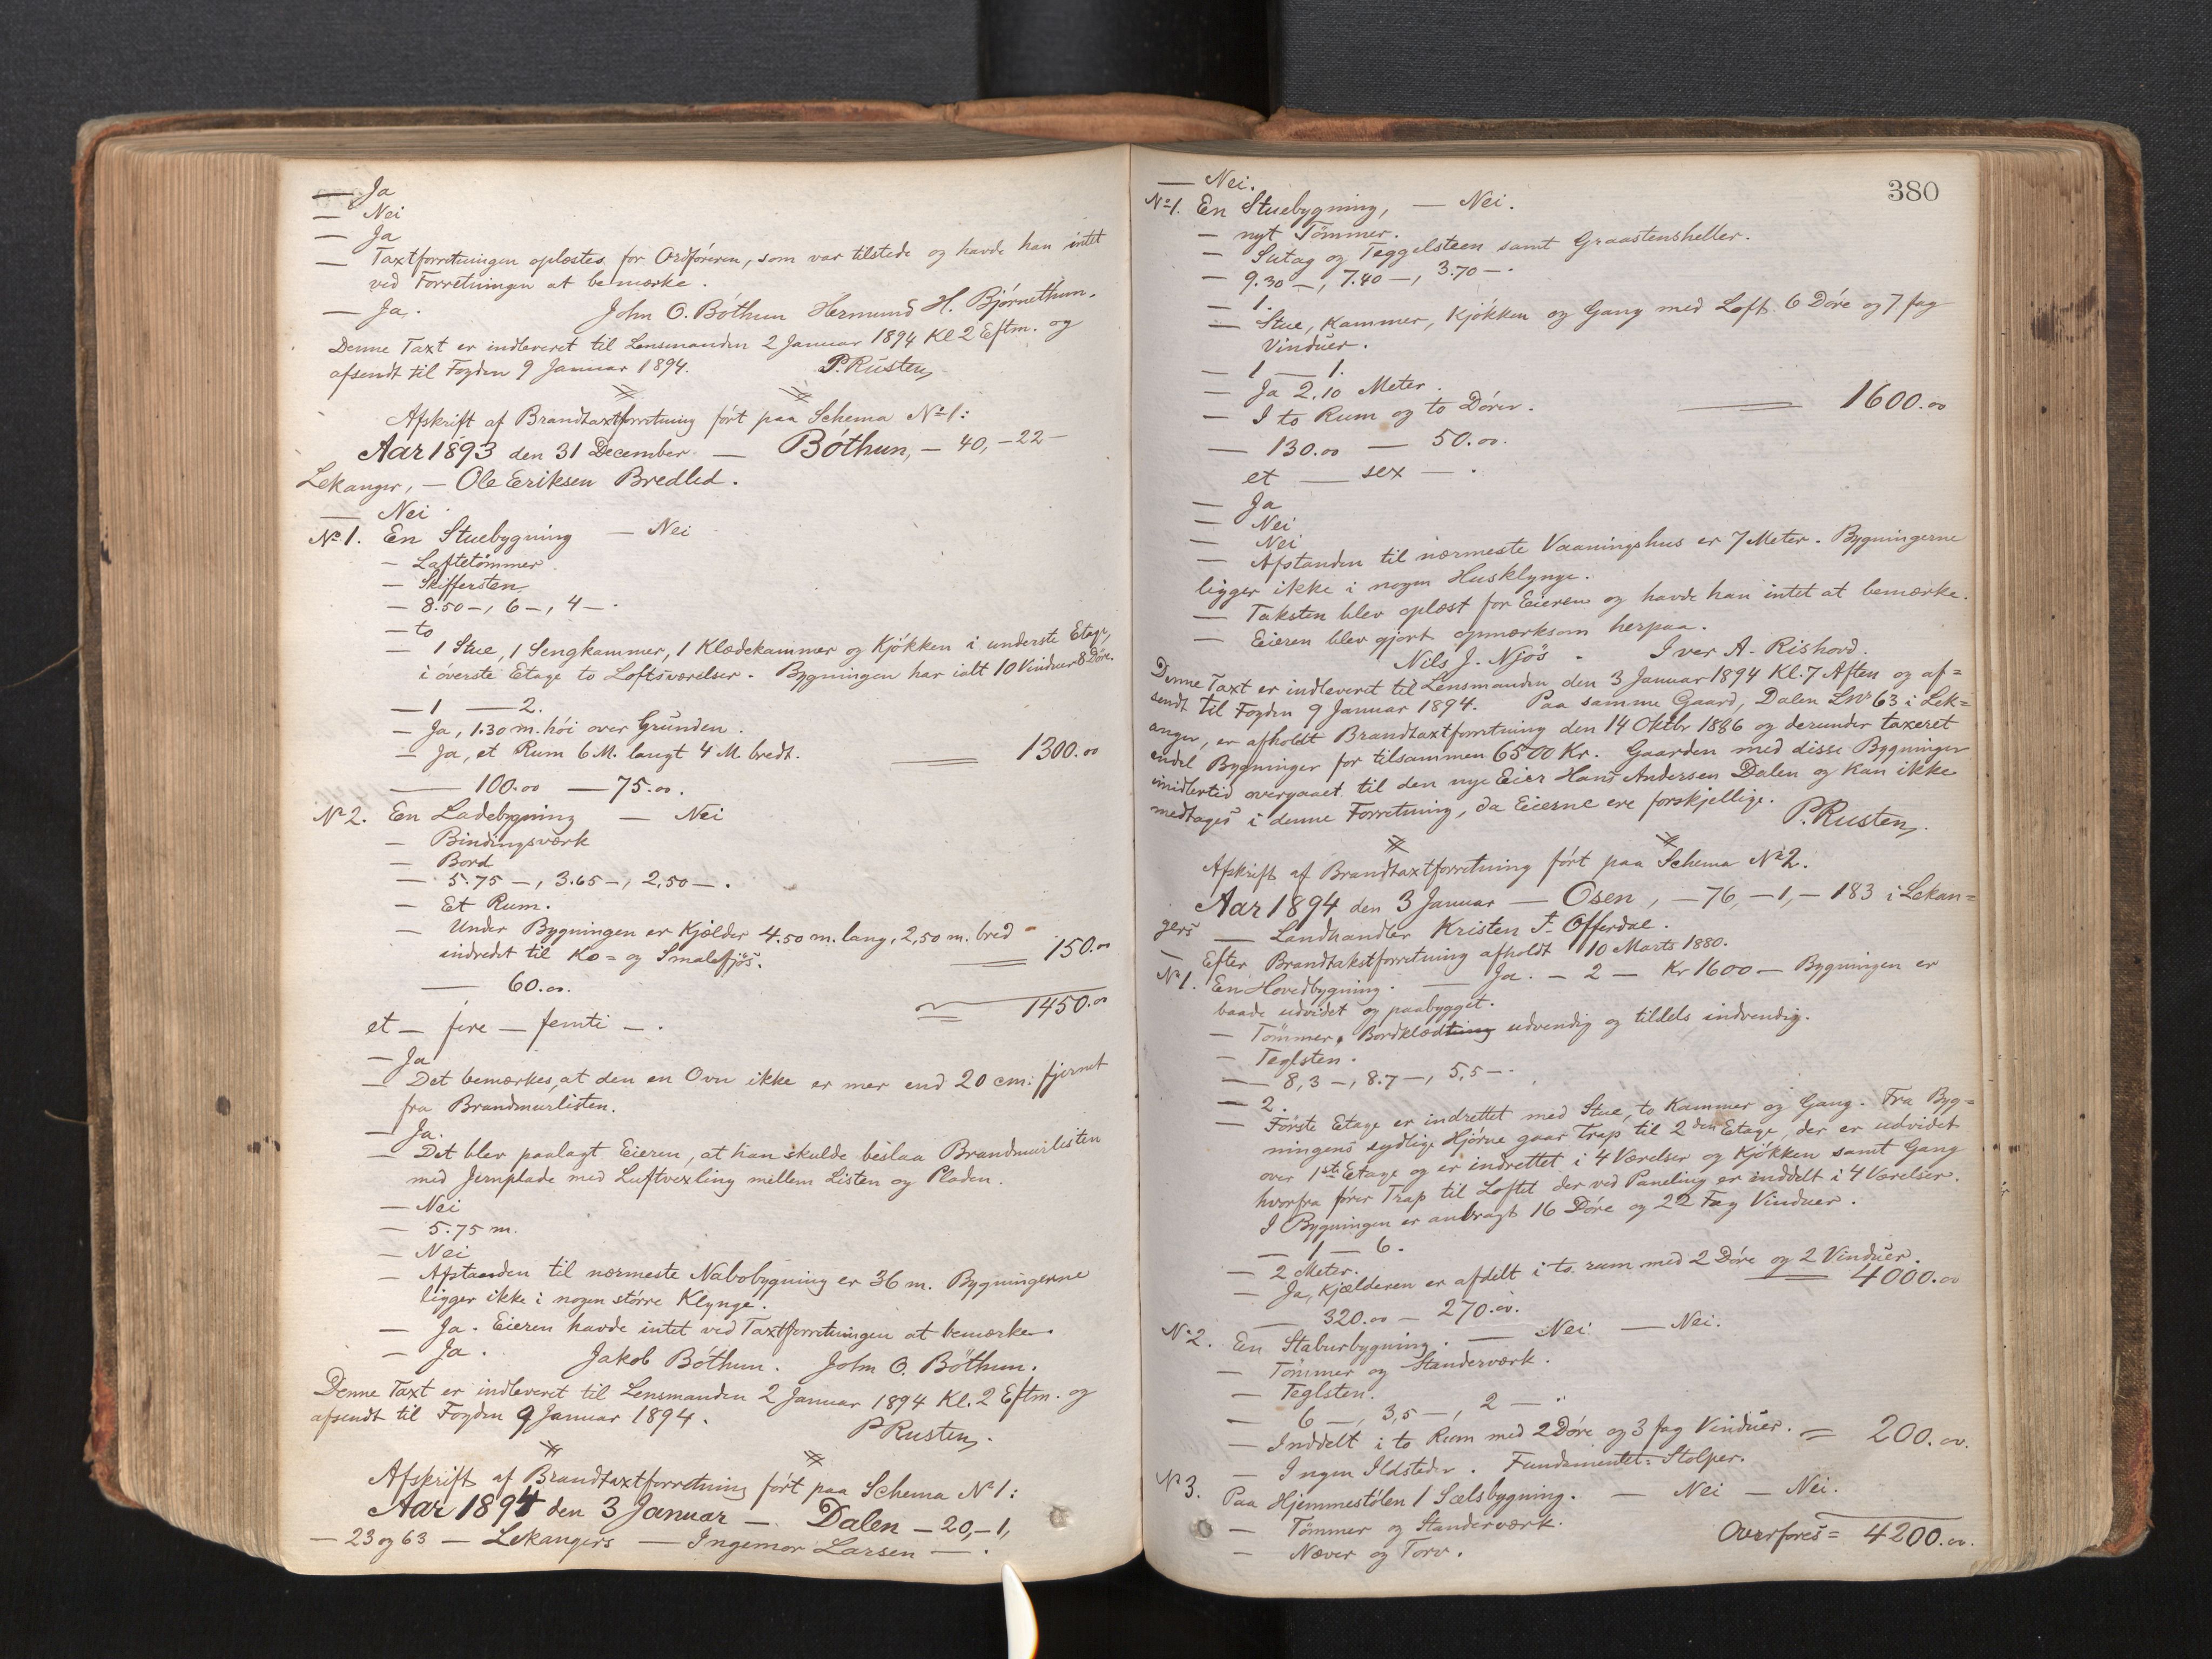 — Ja
— Nei
— Ja
— Taxtforretningen oplæstes for Ordføreren, som var tilstede og havde han intet
ved Forretningen at bemærke.
— Ja. John O. Bóthun Hermund H. Bjórnethun.
Denne Taxt er indleveret til Lensmanden 2 Januar 1894 Kl 2 Eftm. og
afsendt til Fogden 9 Januar 1894. P. Rusten,
Afskrift af Brandtaxtforretning fórt paa Schema No 1:
Aar 1893 den 31 December — Bóthun, — 40, — 22 —
Lekanger, — Ole Eriksen Bredled.
— Nei
No 1. En Stuebygning — Nei
— Laftetömmer
— Skiffersten
— 8.50 —, 6 —, 4 — .
— to
— 1 Stue, 1 Sengkammer, 1 Klædekammer og Kjókken i underste Etage,
i óverste Etage to Loftsværelser. Bygningen har ialt 10 Vinduer 8 Dóre.
— 1 — 2.
— Ja, 1.30 m. hói over Grunden.
— Ja, et Rum 6 M. langt 4 M bredt. 1300.00
— 100.00 — 75.00.
No 2. En Ladebygning — Nei
— Bindingsværk
— Bord
— 5.75 —, 3.65 —, 2,50 — .
— Et Rum.
— Under Bygningen er Kjælder 4.50 m. lang, 2,50 m. bred
indredet til Ko= og Smalefjös. 150.00
— 60.00.
1450.00
et — fire — femti — .
— Ja
— Det bemærkes, at den en Ovn ikke er mer end 20 cm. fjernet
fra Brandmurlisten.
— Ja.
— Det blev paalagt Eieren, at han skulde beslaa Brandmurlisten
med Jernplade med Luftvexling mellem Listen og Pladen.
— Nei
— 5.75 m.
— Nei
— Afstanden til nærmeste Nabobygning er 36 m. Bygningerne
ligger ikke i nogen stórre Klynge.
— Ja. Eieren havde intet ved Taxtforretningen at bemærke.
— Ja. Jakob Bóthun. John O. Bóthun.
Denne Taxt er indleveret til Lensmanden 2 Januar 1894 Kl. 2 Eftm. og
afsendt til Fogden 9 Januar 1894. P Rusten,
Afskrift af Brandtaxtforretning fórt paa Schema No 1:
Aar 1894 den 3 Januar — Dalen — 20, — 1,
— 23 og 63 — Lekangers — Ingemor Larsen — .
380
— Nei.
No 1. En Stuebygning, — Nei.
— nyt Tömmer.
— Sutag og Teggelsteen samt Graastensheller.
— 9.30 —, 7.40 —, 3.70 — .
— 1.
— Stue, Kammer, Kjókken og Gang med Loft. 6 Dóre og 7 fag
Vinduer.
— 1 — 1.
— Ja 2.10 Meter.
— I to Rum og to Dórer. 1600.00
— 130.00 — 50.00.
et — sex — .
— Ja
— Nei
— Nei
— Afstanden til nærmeste Vaaningshus er 7 Meter. Bygningerne
ligger ikke i nogen Husklynge.
— Taksten blev oplæst for Eieren og havde han intet at bemærke.
— Eieren blev gjort opmærksom herpaa.
Nils J. Njös. Iver A. Rishovd.
Denne Taxt er indleveret til Lensmanden den 3 Januar 1894 Kl. 7 Aften og af=
sendt til Fogden 9 Januar 1894. Paa samme Gaard, Dalen Lnr 63 i Lek=
anger, er afholdt Brandtaxtforretning den 14 Oktbr 1886 og derunder taxeret
endel Bygninger for tilsammen 6500 Kr. Gaarden med disse Bygninger
imidlertid overgaaet til den nye Eier Hans Andersen Dalen og kan ikke
medtages i denne Forretning, da Eierne ere forskjellige.
P. Rusten,
Afskrift af Brandtaxtforretning fórt paa Schema No 2.
Aar 1894 den 3 Januar — Osen, — 76, — 1, — 183 i Lekan=
gers — Landhandler Kristen T. Offerdal.
— Efter Brandtakstforretning afholdt 10 Marts 1880.
No 1. En Hovedbygning. — Ja. — 2 — Kr 1600 — Bygningen er
baade udvidet og paabygget.
— Tömmer, Bordklædtning udvendig og tildels indvendig.
— Teglsten.
— 8,3 —, 8.7 —, 5,5 — .
— 2.
— Förste Etage er indrettet med Stue, to Kammer og Gang. Fra Byg=
ningens sydlige Hjórne gaar Trap til 2den Etage, der er udvidet
over 1ste Etage og er indrettet i 4 Værelser og Kjókken samt Gang
hvorfra fórer Trap til Loftet der ved Paneling er inddelt i 4 Værelser.
I Bygningen er anbragt 16 Dóre og 22 Fag Vinduer.
— 1 — 6.
— 2 Meter.
— Ja, Kjælderen er afdelt i to rum med 2 Dóre og 2 Vinduer. 4000.00
— 320.00 — 270.00.
No 2. En Staburbygning. — Nei — Nei.
— Tömmer og Standerværk.
— Teglsten.
— 6 —, 3,5 —, 2 — .
— Inddelt i to Rum med 2 Dóre og 3 fag Vinduer. = 200.00.
— Ingen Ildsteder. Fundamentet: Stolper.
No 3. Paa Hjemmestólen 1 Sælsbygning. — Nei — Nei.
— Tömmer og Standerværk.
— Næver og Torv. Overfores = 4200.00.